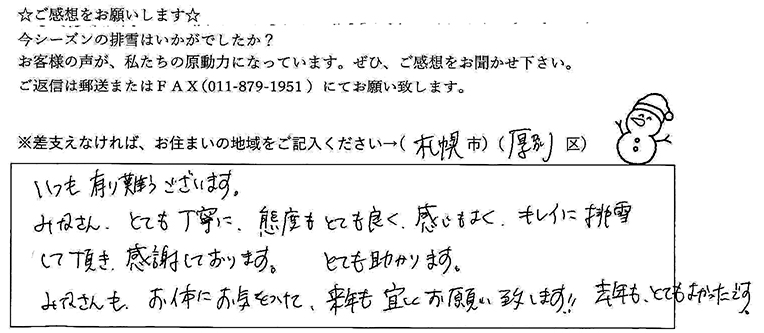 ☆ご感想をお願いします☆
今シーズンの排雪はいかがでしたか？
お客様の声が、私たちの原動力になっています。ぜひ、ご感想をお聞かせ下さい。
ご返信は郵送またはＦＡＸ(011-879-1951）にてお願い致します。
※差支えなければ、お住まいの地域をご記入ください→( 札幌 市）( 厚別 区）
いつも有り難うございます。
みなさん、とても丁寧に、態度もとても良く、感じもよく、キレイに排雪
して頂き、感謝しております。 とても助かります。
みなさんも、お体にお気をつけて、来年も宜しくお願い致します!! 去年も、とてもよかったです。